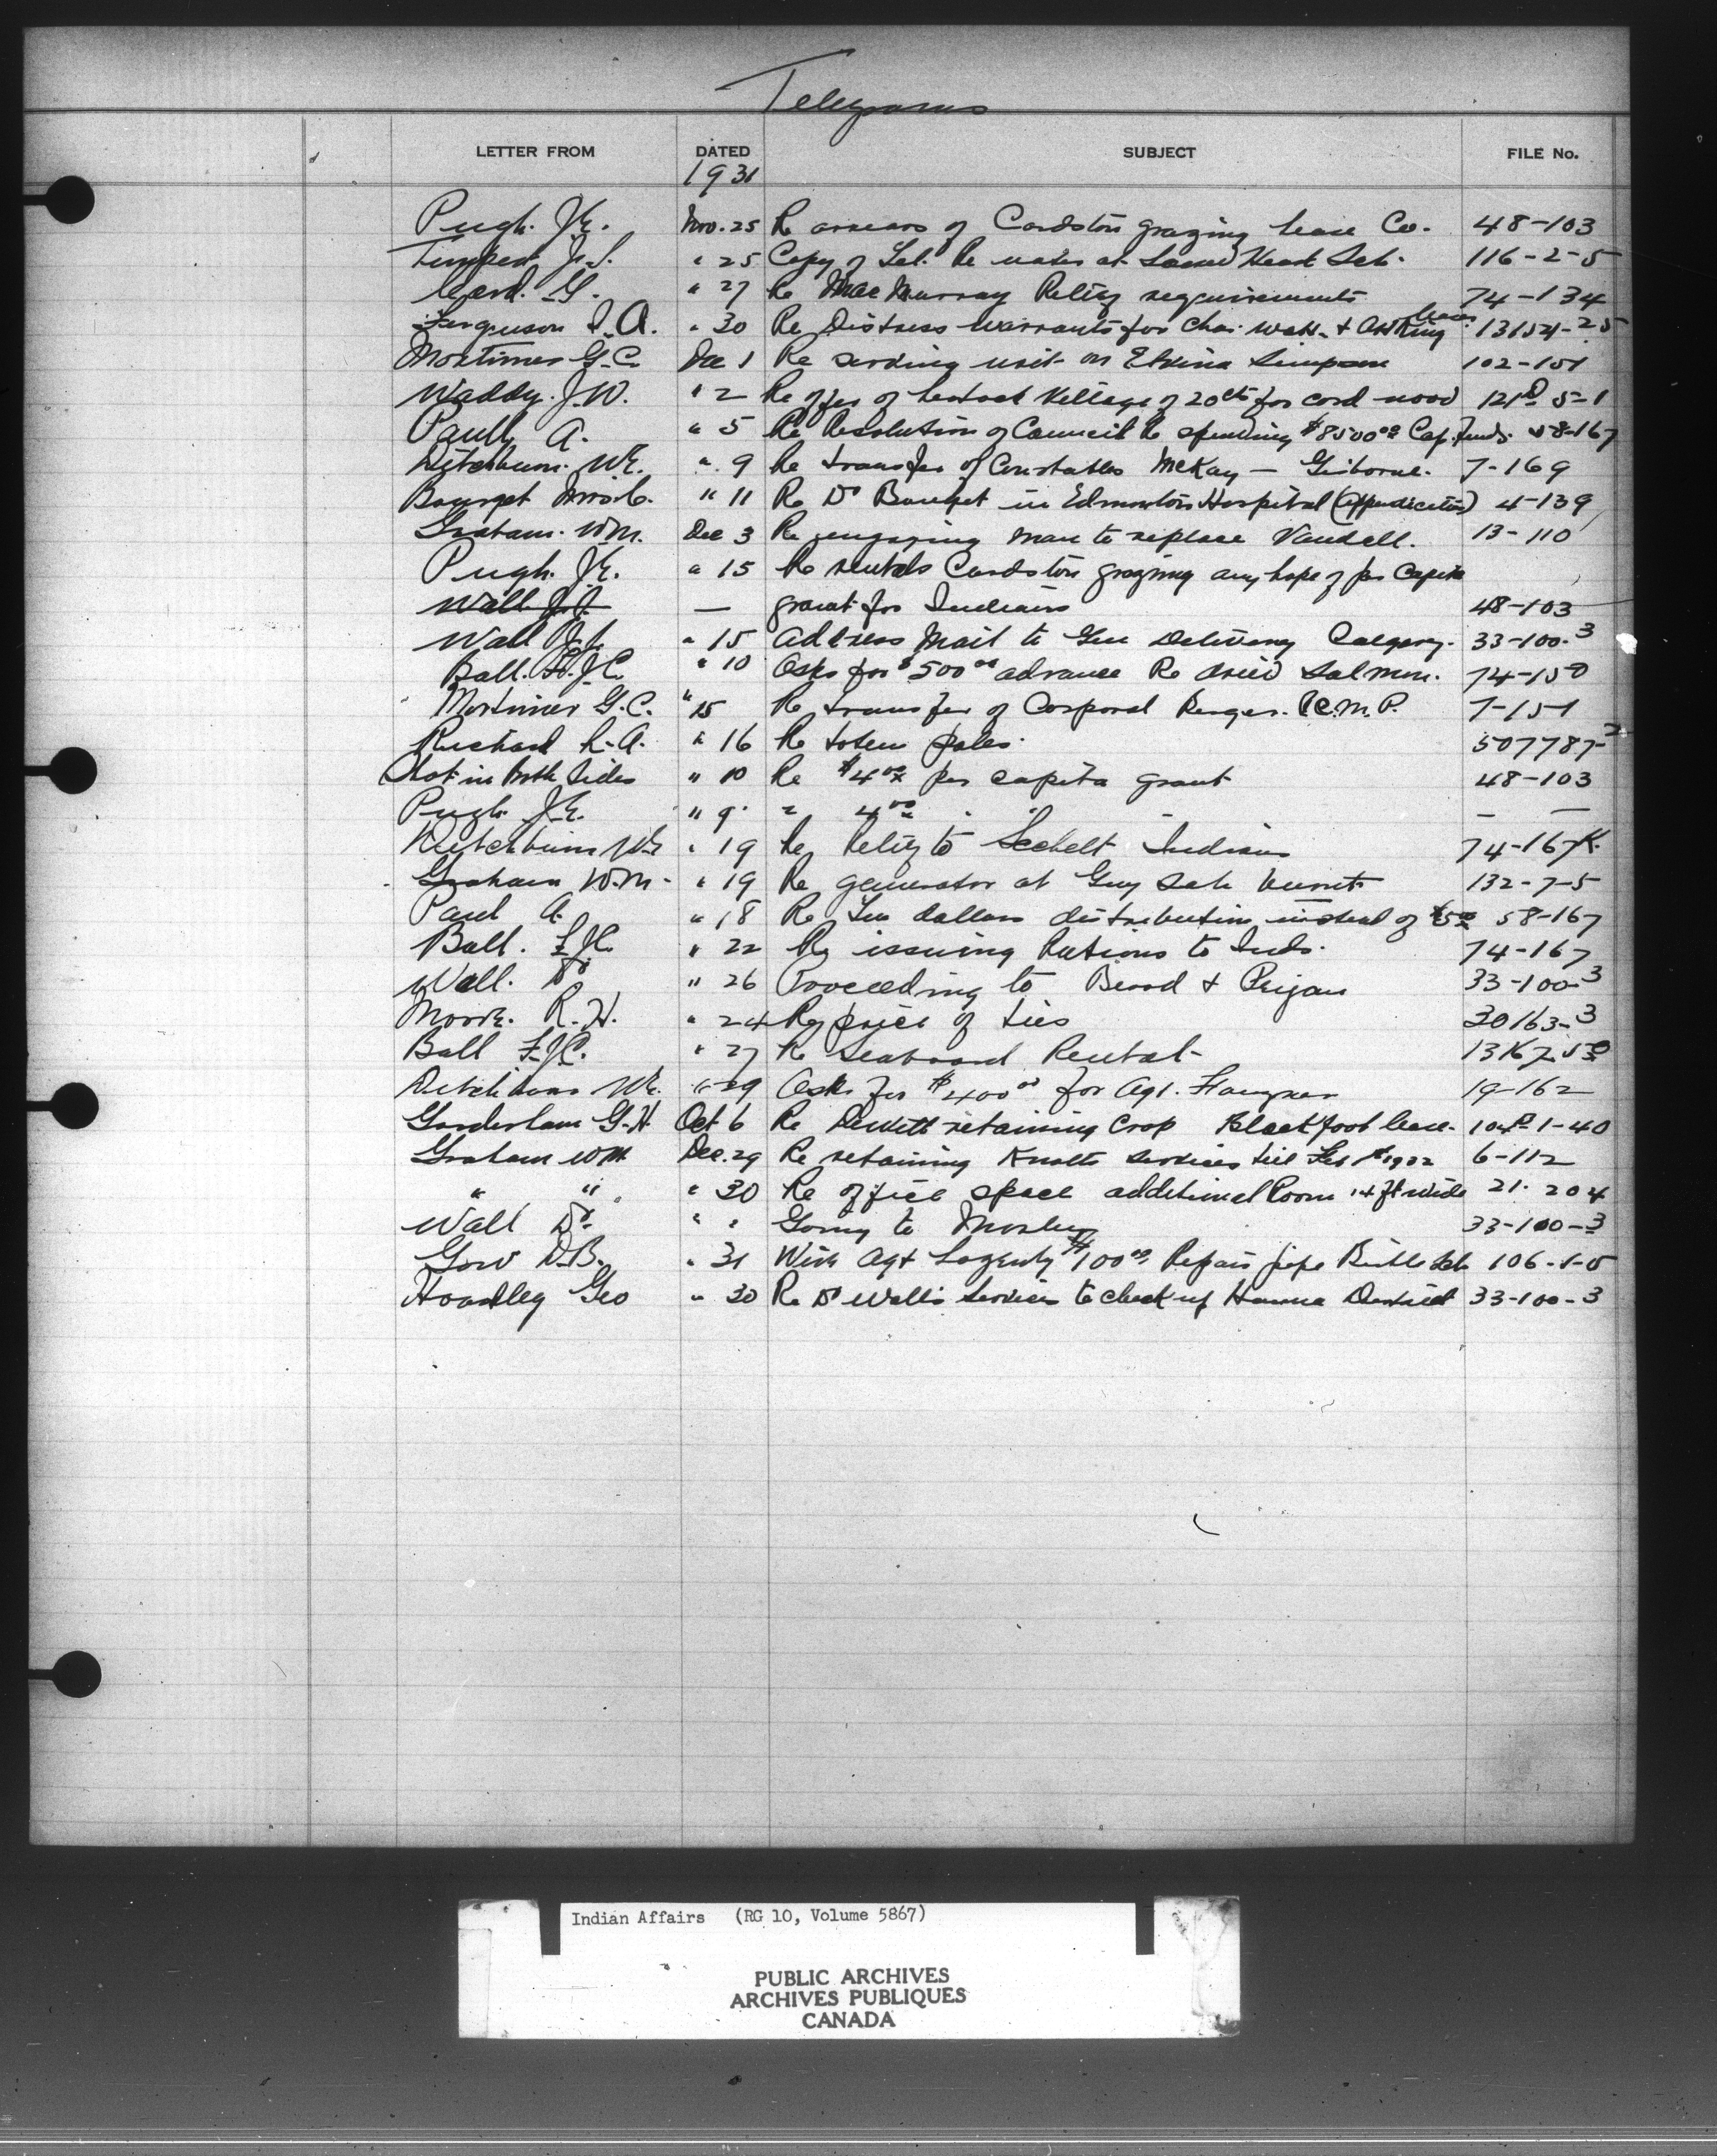 Telegrams
LETTER FROM DATED SUBJECT FILE No.
1931
Pugh. J.E. Nov. 25 Re arrears of Cardston grazing lease Co. 48-103
J.S. " 25 Copy of Tel. Re water at Sacred Heart Sch. 116-2-5
Card. G. " 27 Re MacMurray Relief requirements 74-134
Ferguson T.A. " 30 Re Distress Warrants for Chas. & King leases 13154-25
Mortimer G.C. Dec 1 Re serving writ on Elvina Simpson 102-151
Waddy. J.W. " 2 Re offer of Village of 20cts for cord wood 121D 5-1
Paull A. " 5 Re Resolution of Council Re spending $8500.00 Cap. Funds. 58-167
Ditchburn. W.E. " 9 Re transfer of Constables McKay — Gisborne. 7-169
Bourget Mrs. C. " 11 Re Dr Bourget in Edmonton Hospital (Appendicitis) 4-139
Graham. W.M. Dec 3 Re engaging man to replace Vandell. 13-110
Pugh. J.E. " 15 Re rentals Cardston grazing any hope of per Capita
Wall J.J. — grant for Indians 48-103
Wall J.J. " 15 Address Mail to Gen Delivery Calgary. 33-100-3
Ball. F.J.C. " 10 Asks for $500.00 advance Re dried Salmon. 74-150
Mortimer G.C. " 15 Re transfer of Corporal Berger. R.C.M.P. 7-151
Richard L.A. " 16 Re totem poles. 507787-2
Shot in Both Sides " 10 Re $4.00 per capita grant 48-103
Pugh. J.E. " 9. " 4.00 " " — —
Ditchburn W.E. " 19 Re Relief to Sechelt Indians 74-167K.
Graham W.M. " 19 Re generator at Guy Sch 132-7-5
Paul A. " 18 Re Ten dollars distribution instead of $5.00 58-167
Ball. F.J.C. " 22 Re issuing Rations to Inds. 74-167
Wall. Dr " 26 Proceeding to Blood & Peigan 33-100-3
Moore. R.H. " 24 Re price of ties 30163-3
Ball F.J.C. " 27 Re Seaboard Rental
Ditchburn W.E. " 29 Asks for $400.00 for Agt. 19-162
Gooderham G.H. Oct 6 Re Dewitt retaining Crop Blackfoot lease. 104B 1-40
Graham W.M. Dec. 29 Re retaining Knotts services till Feb 1st 1932 6-112
" " " 30 Re office space additional Room 14 ft wide 21-204
Wall Dr. " " Going to Morley 33-100-3
Gow D.B. " 31 Wire Agt $100.00 Repair pipe Birtle Sch 106-1-5
Hoadley Geo " 30 Re Dr Wall's services to check up Hanna District 33-100-3
Indian Affairs (RG 10, Volume 5867)
PUBLIC ARCHIVES
ARCHIVES PUBLIQUES
CANADA